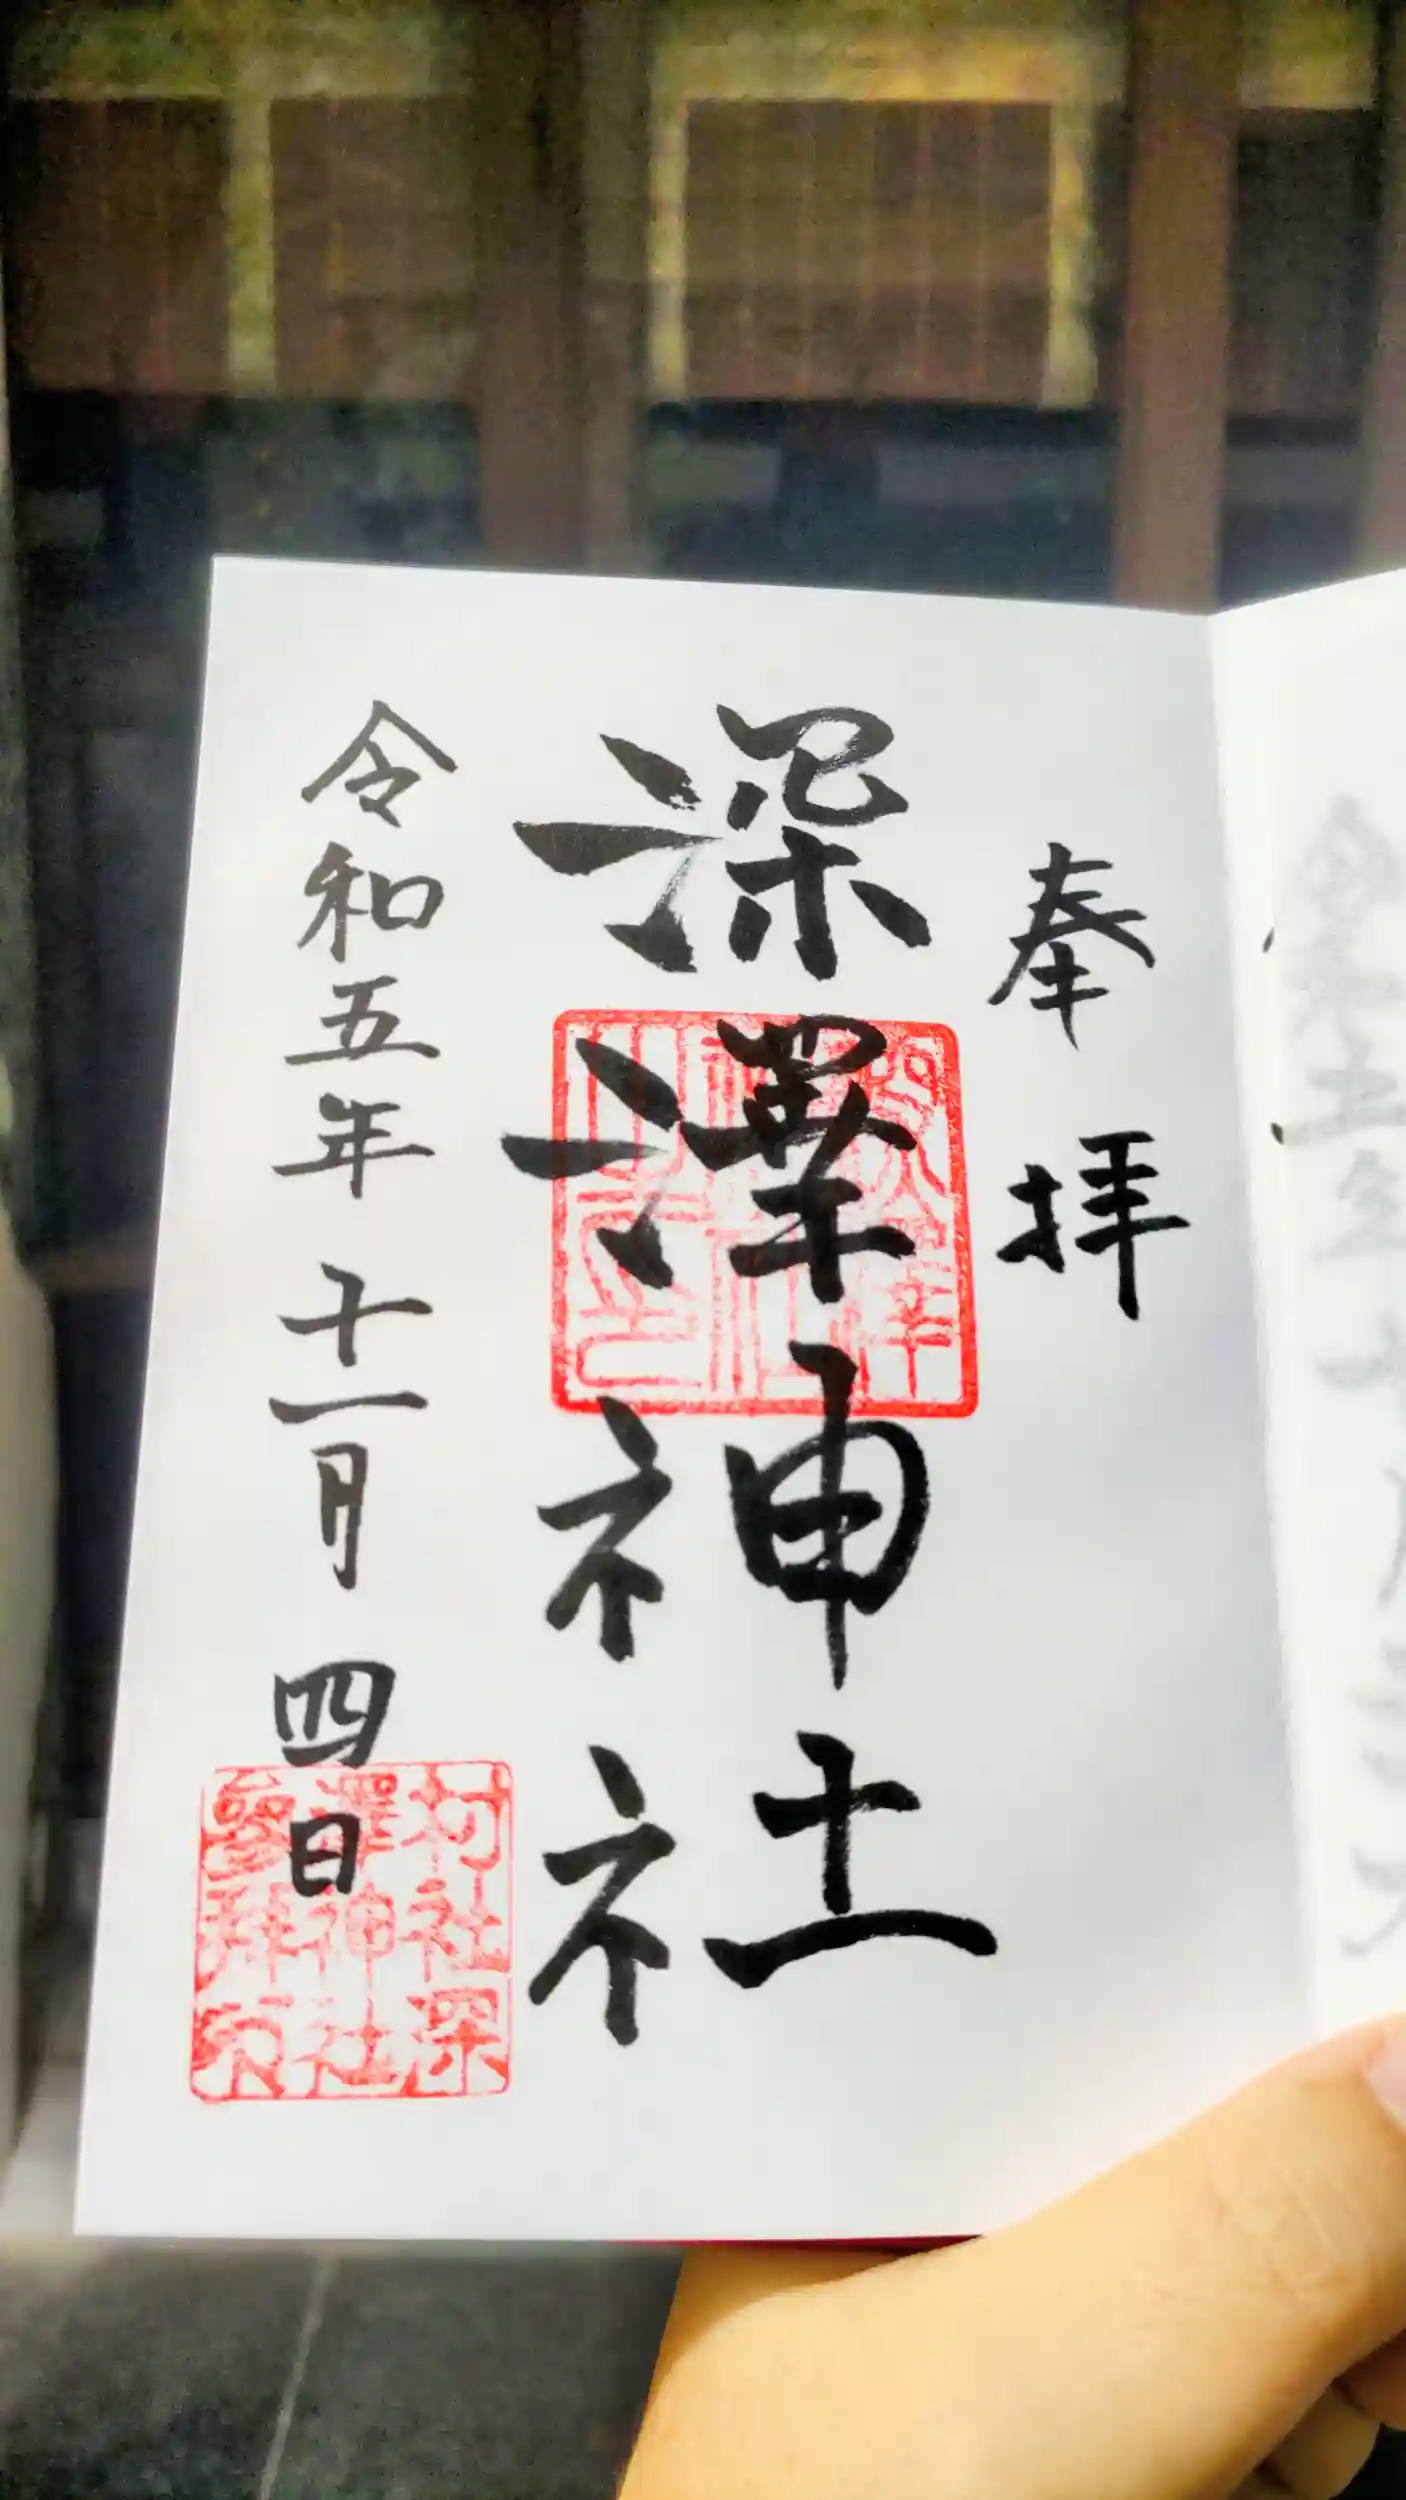 奉拝
深澤神社
令和五年十一月四日
村社深
澤神社
参拜